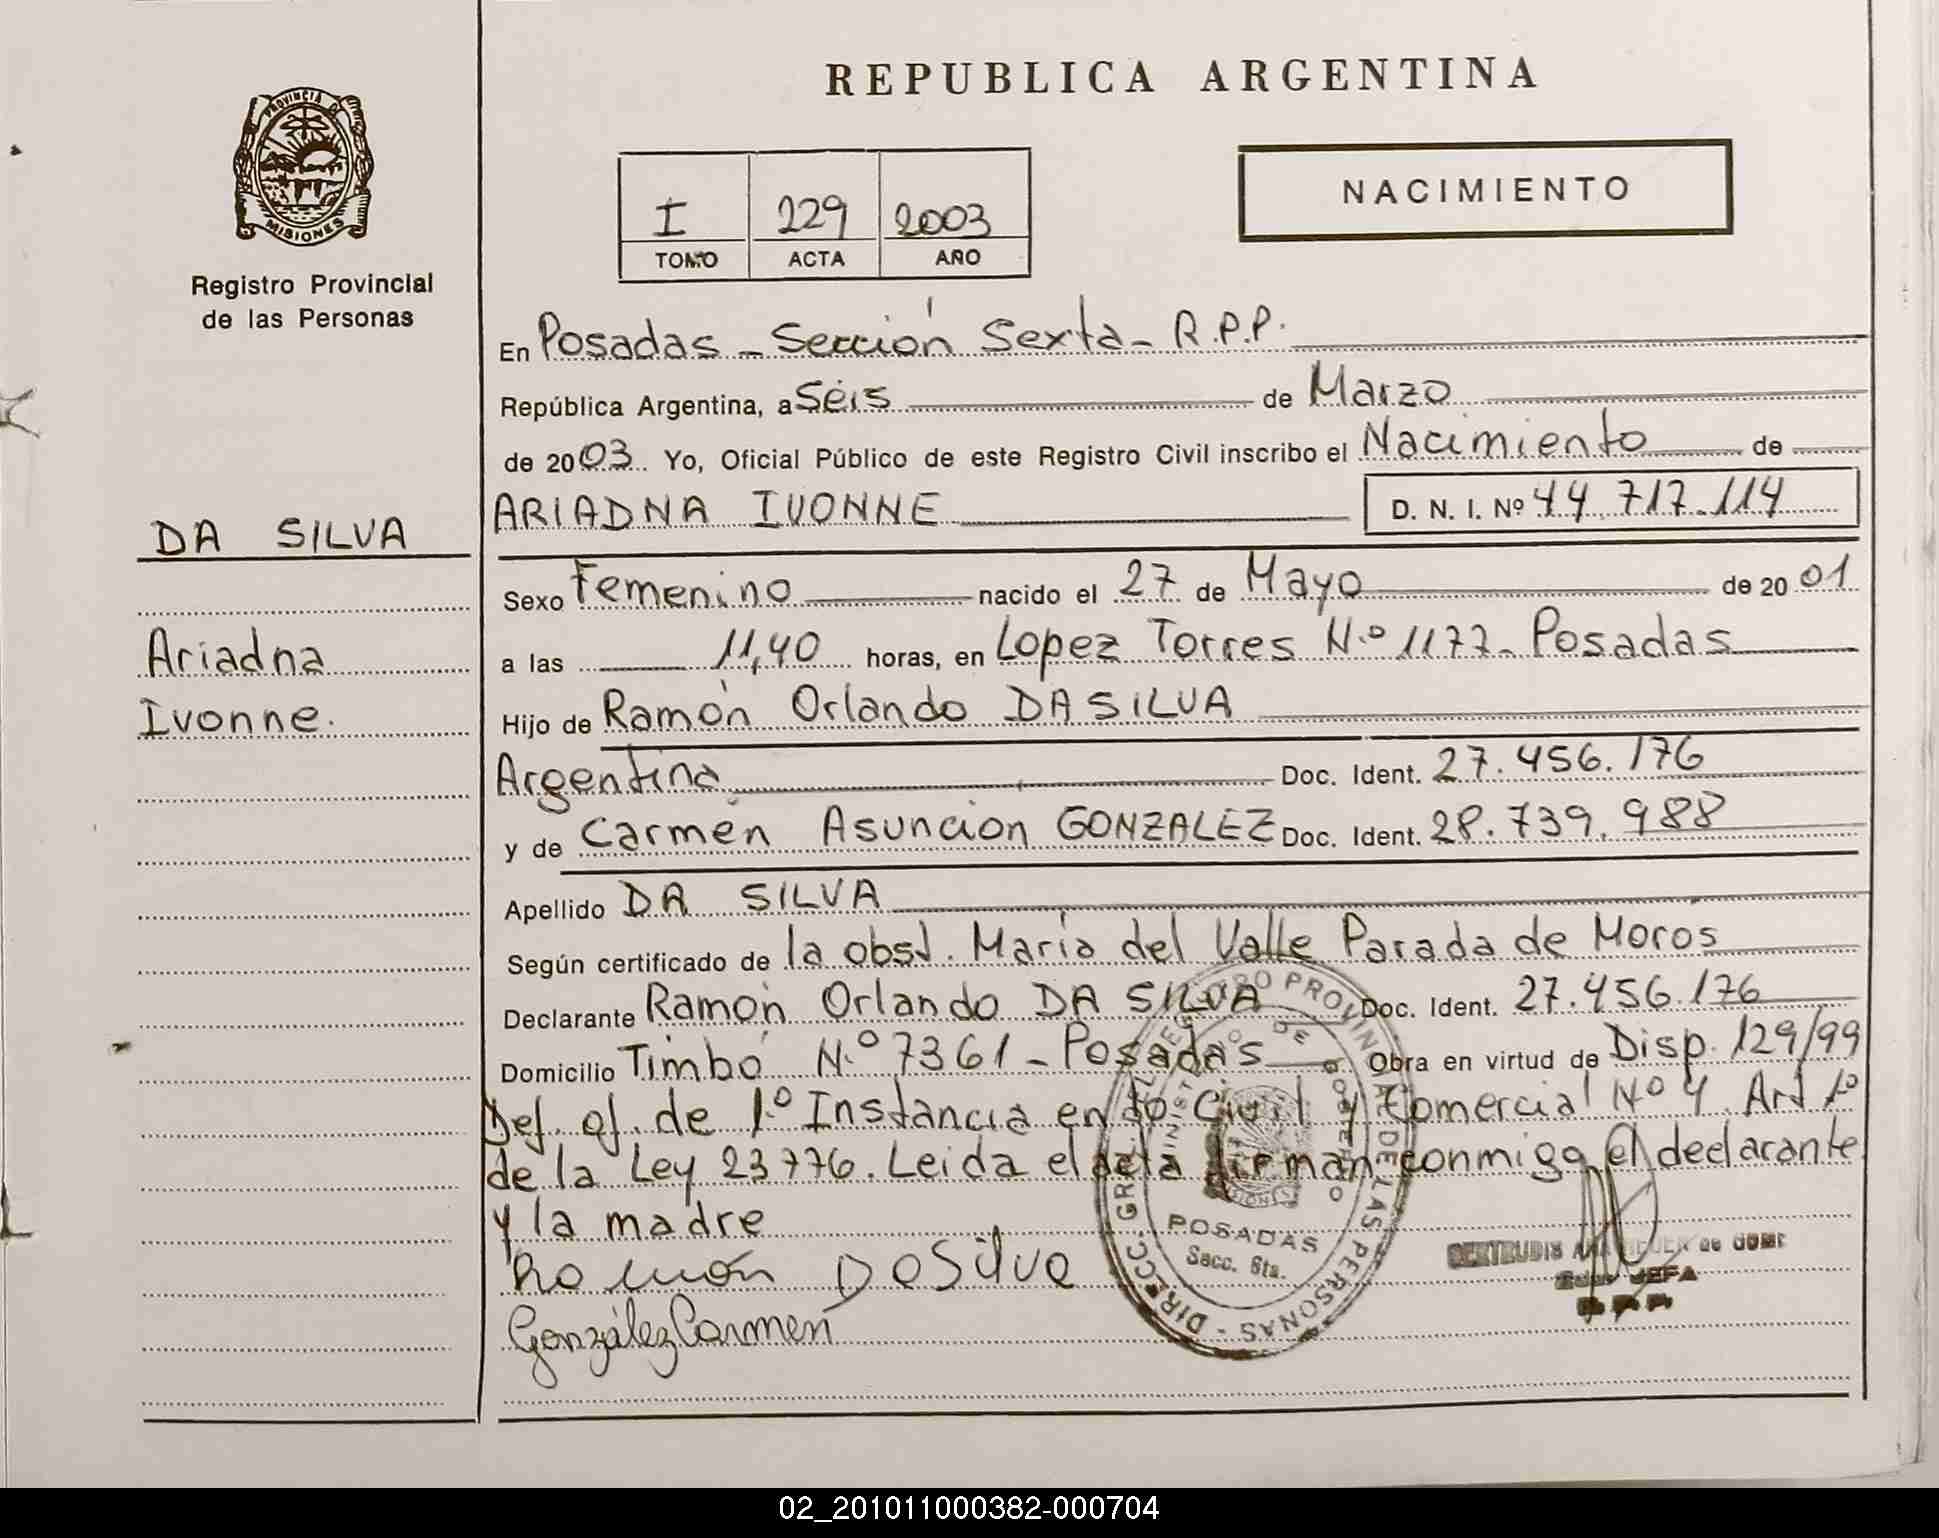 REPUBLICA ARGENTINA
PROVINCIA DE
MISIONES
Registro Provincial
de las Personas
I 229 2003
TOMO ACTA AÑO
NACIMIENTO
En Posadas - Sección Sexta - R.P.P.
República Argentina, a Séis de Marzo
de 2003. Yo, Oficial Público de este Registro Civil inscribo el Nacimiento de
ARIADNA IVONNE D. N. I. Nº 44.717.114
DA SILVA
Sexo Femenino nacido el 27 de Mayo de 2001
Ariadna
a las 11,40 horas, en Lopez Torres N.º 1177- Posadas
Ivonne.
Hijo de Ramón Orlando DA SILVA
Argentina Doc. Ident. 27.456.176
y de Carmen Asuncion GONZALEZ Doc. Ident. 28.739.988
Apellido DA SILVA
Según certificado de la obst. María del Valle Parada de Moros
Declarante Ramón Orlando DA SILVA Doc. Ident. 27.456.176
Domicilio Timbó N.º 7361 - Posadas Obra en virtud de Disp. 129/99
Def. of. de 1.º Instancia en lo Civil y Comercial Nº 4 Art 1º
de la Ley 23776. Leida el acta firman conmigo el declarante
y la madre
Ramón DaSilva
González Carmen
DIRECC. GRAL. DEL REGISTRO PROVINCIAL DE LAS PERSONAS -
MINISTERIO DE GOBIERNO
POSADAS
Secc. 6ta.
GERTRUDIS
JEFA
R.P.P.
02_201011000382-000704